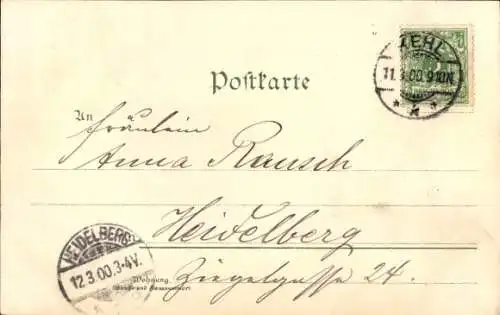 KEHL
11.3.00.9-10N.
Postkarte
An
Fräulein
Anna Rausch
Heidelberg
HEIDELBERG
12.3.00.3-4V.
Wohnung
Ziegelgasse 24.